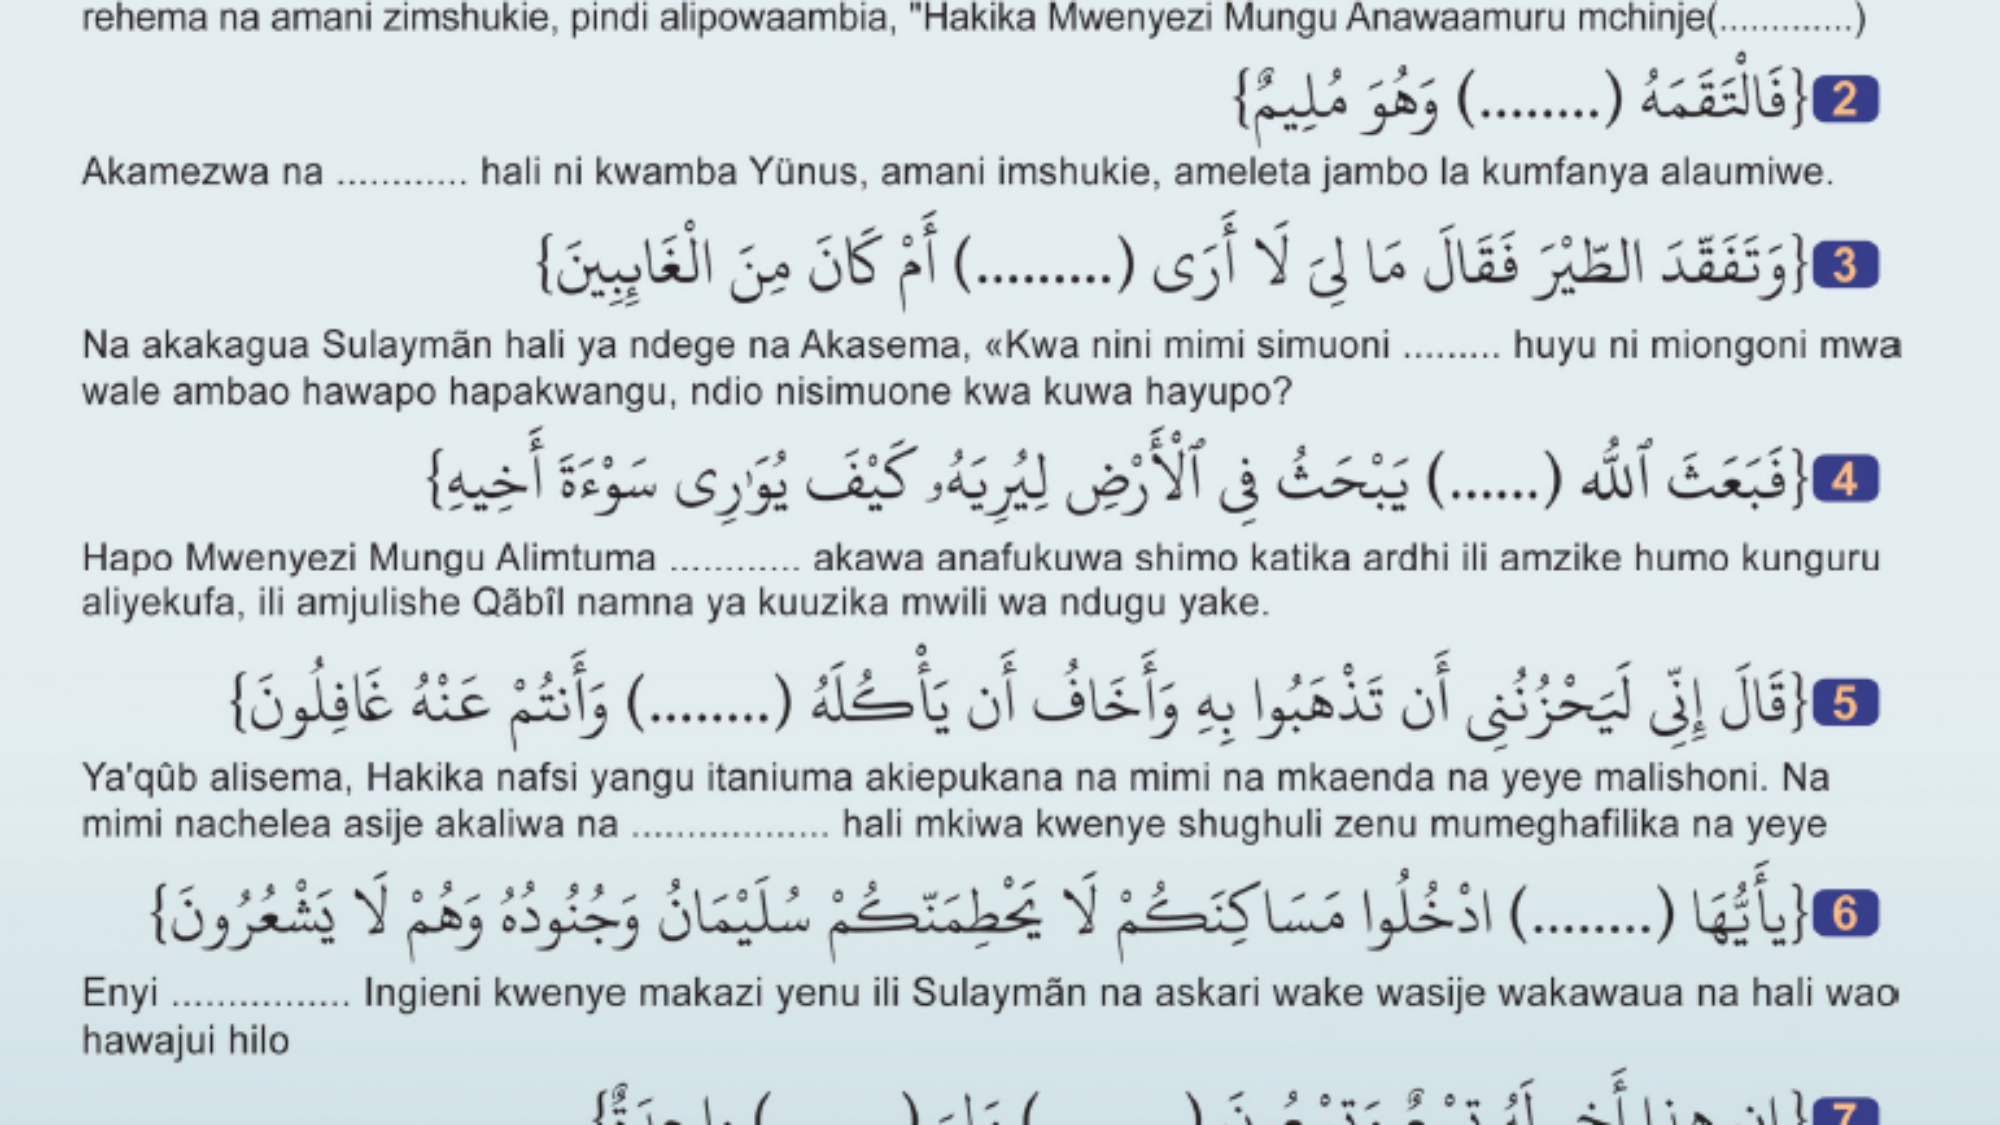 rehema na amani zimshukie, pindi alipowaambia, "Hakika Mwenyezi Mungu Anawaamuru mchinje(.............)
2 {فَالْتَقَمَهُ (........) وَهُوَ مُلِيمٌ}
Akamezwa na ............ hali ni kwamba Yünus, amani imshukie, ameleta jambo la kumfanya alaumiwe.
3 {وَتَفَقَّدَ الطَّيْرَ فَقَالَ مَا لِيَ لَا أَرَى (.........) أَمْ كَانَ مِنَ الْغَايِبِينَ}
Na akakagua Sulaymãn hali ya ndege na Akasema, «Kwa nini mimi simuoni ......... huyu ni miongoni mwa
wale ambao hawapo hapakwangu, ndio nisimuone kwa kuwa hayupo?
4 {فَبَعَثَ ٱللَّه (......) يَبْحَثُ فِى ٱلْأَرْضِ لِيُرِيَهُۥ كَيْفَ يُوَٰرِى سَوْءَةَ أَخِيهِ}
Hapo Mwenyezi Mungu Alimtuma ............ akawa anafukuwa shimo katika ardhi ili amzike humo kunguru
aliyekufa, ili amjulishe Qãbîl namna ya kuuzika mwili wa ndugu yake.
5 {قَالَ إِنِّى لَيَحْزُنُنِى أَن تَذْهَبُوا بِهِ وَأَخَافُ أَن يَأْكُلَهُ (........) وَأَنتُمْ عَنْهُ غَافِلُونَ}
Ya'qûb alisema, Hakika nafsi yangu itaniuma akiepukana na mimi na mkaenda na yeye malishoni. Na
mimi nachelea asije akaliwa na .................. hali mkiwa kwenye shughuli zenu mumeghafilika na yeye
6 {يأَيُّهَا (........) ادْخُلُوا مَسَاكِنَكُمْ لَا يَحْطِمَنَّكُمْ سُلَيْمَانُ وَجُنُودُهُ وَهُمْ لَا يَشْعُرُونَ}
Enyi ................ Ingieni kwenye makazi yenu ili Sulaymãn na askari wake wasije wakawaua na hali wao
hawajui hilo
7